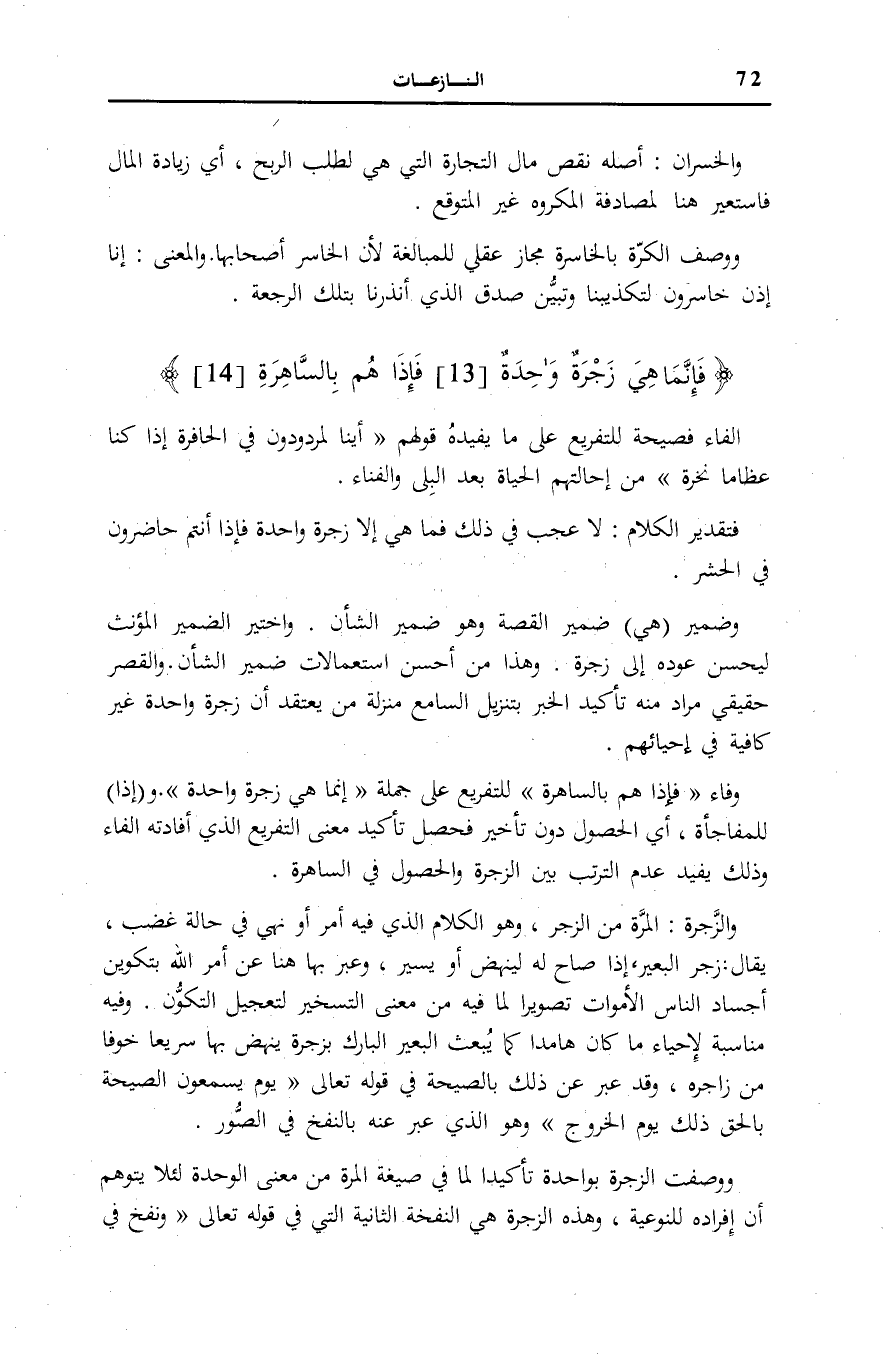 72
النـــازعـــات
والخسران : أصله نقص مال التجارة التي هي لطلب الربح ، أي زيادة المال
فاستعير هنا لمصادفة المكروه غير المتوقع .
ووصف الكرّة بالخاسرة مجاز عقلي للمبالغة لأن الخاسر أصحابها.والمعنى : إنا
إذن خاسرون لتكذيبنا وتبيُّن صدق الذي أنذرنا بتلك الرجعة .
﴿ فَإِنَّمَا هِيَ زَجْرَةٌ وَٰحِدَةٌ [13] فَإِذَا هُم بِالسَّاهِرَةِ [14] ﴾
الفاء فصيحة للتفريع على ما يفيدهُ قولهم « أينا لمردودون في الحافرة إذا كنا
عظاما نخرة » من إحالتهم الحياة بعد البِلى والفناء .
فتقدير الكلام : لا عجب في ذلك فما هي إلا زجرة واحدة فإذا أنتم حاضرون
في الحشر .
وضمير (هي) ضمير القصة وهو ضمير الشأن . واختير الضمير المؤنث
ليحسن عوده إلى زجرة . وهذا من أحسن استعمالات ضمير الشأن.والقصر
حقيقي مراد منه تأكيد الخبر بتنزيل السامع منزلة من يعتقد أن زجرة واحدة غير
كافية في إحيائهم .
وفاء « فإذا هم بالساهرة » للتفريع على جملة « إنما هي زجرة واحدة ».و(إذا)
للمفاجأة ، أي الحصول دون تأخير فحصل تأكيد معنى التفريع الذي أفادته الفاء
وذلك يفيد عدم الترتب بين الزجرة والحصول في الساهرة .
والزَّجرة : المرَّة من الزجر ، وهو الكلام الذي فيه أمر أو نهي في حالة غضب ،
يقال:زجر البعير،إذا صاح له لينهض أو يسير ، وعبر بها هنا عن أمر الله بتكوين
أجساد الناس الأموات تصويرا لما فيه من معنى التسخير لتعجيل التكوُّن . وفيه
مناسبة لإحياء ما كان هامدا كما يُبعث البعير البارك بزجرة ينهض بها سريعا خوفا
من زاجره ، وقد عبر عن ذلك بالصيحة في قوله تعالى « يوم يسمعون الصيحة
بالحق ذلك يوم الخروج » وهو الذي عبر عنه بالنفخ في الصُّور .
ووصفت الزجرة بواحدة تأكيدا لما في صيغة المرة من معنى الوحدة لئلا يتوهم
أن إفراده للنوعية ، وهذه الزجرة هي النفخة الثانية التي في قوله تعالى « ونفخ في